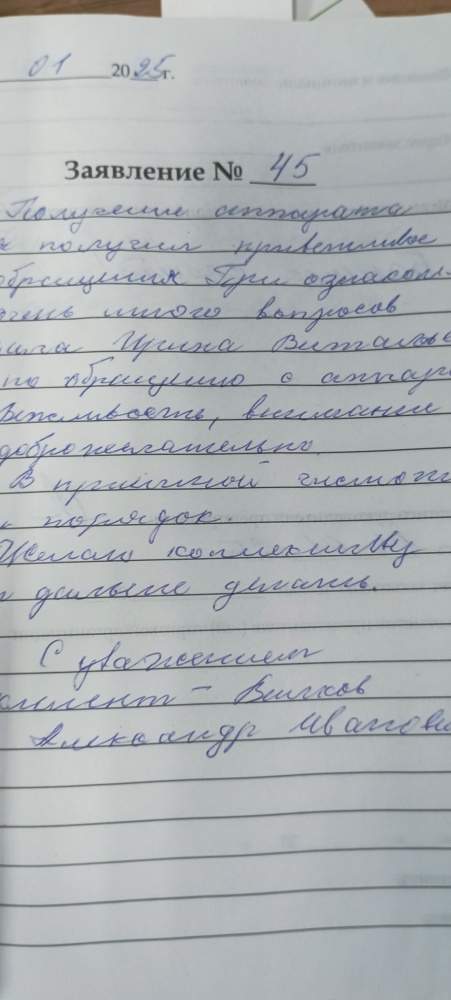 01 2025г.
Заявление № 45
Получение аппарата
я получил приветливое
обращения При ознаком-
очень много вопросов
Ирина Виталье
по обращению с аппар
Вежливость, внимание
доброжелательно.
В приёмной чистота
и порядок.
Желаю коллективу
дальше
С уважением
клиент -
Александр Иванови